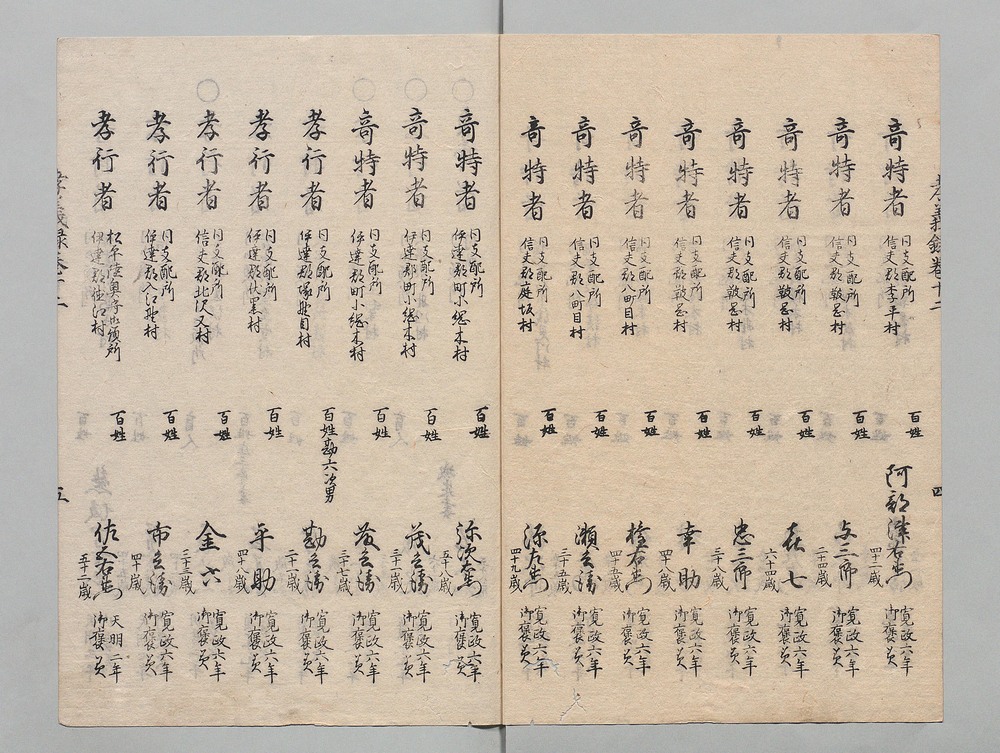 孝義録巻十二
四
奇特者
同支配所
信夫郡李平村
百姓
阿部津右衛門
四十二歳
寛政六年
御褒美
奇特者
同支配所
信夫郡鼓岡村
百姓
与三郎
二十四歳
寛政六年
御褒美
奇特者
同支配所
信夫郡鼓岡村
百姓
喜七
六十四歳
寛政六年
御褒美
奇特者
同支配所
信夫郡鼓岡村
百姓
忠三郎
三十八歳
寛政六年
御褒美
奇特者
同支配所
信夫郡鼓岡村
百姓
幸助
四十八歳
寛政六年
御褒美
奇特者
同支配所
信夫郡八町目村
百姓
右衛門
四十五歳
寛政六年
御褒美
奇特者
同支配所
信夫郡八町目村
百姓
瀬兵衛
三十五歳
寛政六年
御褒美
奇特者
同支配所
信夫郡庭坂村
百姓
源左衛門
四十九歳
寛政六年
御褒美
奇特者
同支配所
伊達郡町小綱木村
百姓
弥次右衛門
五十八歳
寛政六年
御褒美
奇特者
同支配所
伊達郡町小綱木村
百姓
茂兵衛
三十一歳
寛政六年
御褒美
奇特者
同支配所
伊達郡町小綱木村
百姓
藤兵衛
三十六歳
寛政六年
御褒美
孝行者
同支配所
伊達郡塚野目村
百姓勘六次男
勘兵衛
二十一歳
寛政六年
御褒美
孝行者
同支配所
伊達郡伏黒村
百姓
平助
四十八歳
寛政六年
御褒美
孝行者
同支配所
信夫郡北沢又村
百姓
金六
三十三歳
寛政六年
御褒美
孝行者
同支配所
伊達郡入江野村
百姓
市兵衛
四十歳
寛政六年
御褒美
孝行者
松平陸奥守御預所
伊達郡江村
百姓
佐五右衛門
五十二歳
天明二年
御褒美
孝義録巻十二
五